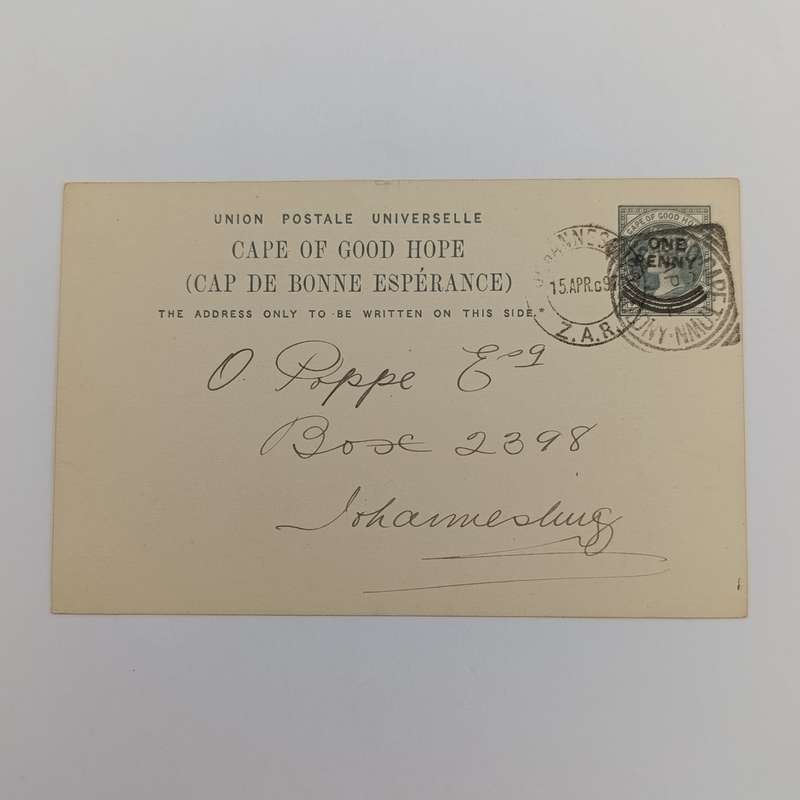 UNION POSTALE UNIVERSELLE
CAPE OF GOOD HOPE
(CAP DE BONNE ESPÉRANCE)
THE ADDRESS ONLY TO BE WRITTEN ON THIS SIDE.
CAPE OF GOOD HOPE
ONE
PENNY
15.APR.97
Z.A.R.
CAPE TOWN
O. Poppe Esq
Box 2398
Johannesburg